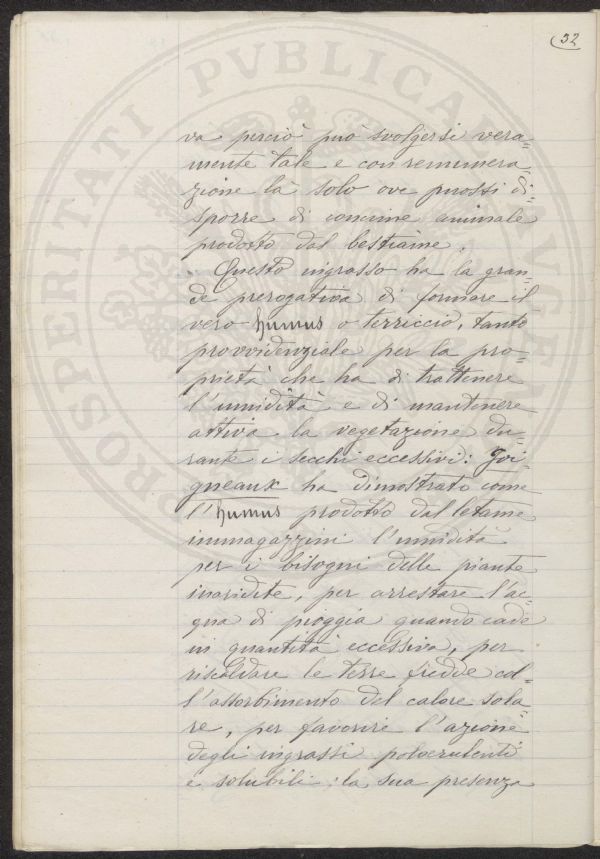 32
va perciò può svolgersi vera=
mente tale e con remunera=
zione là solo ove puossi di=
sporre di concime animale
prodotto dal bestiame.
Questo ingrasso ha la gran=
de prerogativa di formare il
vero humus o terriccio, tanto
provvidenziale per la pro=
prietà che ha di trattenere
l'umidità e di mantenere
attiva la vegetazione du=
rante i secchi eccessivi: Joi=
gneaux ha dimostrato come
l'humus prodotto dal letame
immagazzini l'umidità
per i bisogni delle piante
inaridite, per arrestare l'ac=
qua di pioggia quando cade
in quantità eccessiva, per
riscaldare le terre fredde col=
l'assorbimento del calore sola=
re, per favorire l'azione
degli ingrassi polverulenti
e solubili; la sua presenza
PROSPERITATI PVBLICAE AVGENDAE